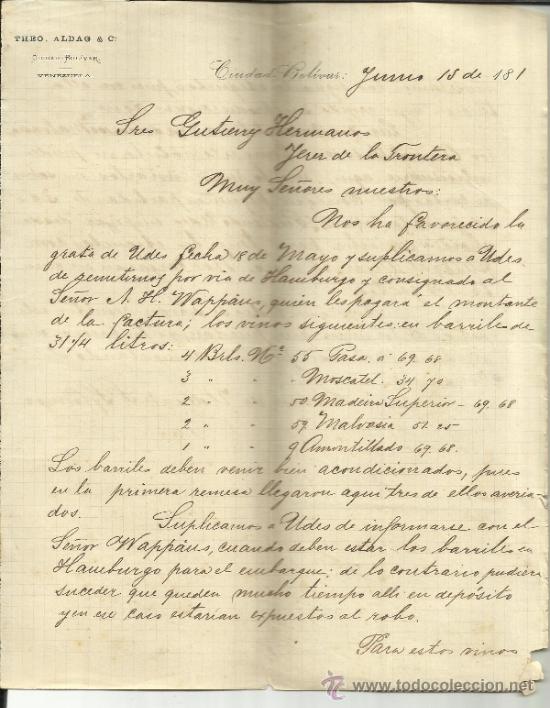 THEO. ALDAG & Cº
CIUDAD BOLÍVAR
VENEZUELA
Ciudad-Bolívar: Junio 15 de 181
Sres Gutierrez Hermanos
Jerez de la Frontera
Muy Señores nuestros:
Nos ha favorecido la
grata de Udes fecha 18 de Mayo y suplicamos a Udes
de remetirnos por via de Hamburgo y consignado al
Señor A. H. Wappäus, quien les pagará el montante
de la factura; los vinos siguientes en barriles de
31 1/4 litros: 4 Brls. Nº 55 Pasa á 69.68
3 " " " Moscatel. 34 70
2 " " 50 Madeira Superior - 69.68
2 " " 59 Malvasia 51.25
1 " " 9 Amontillado 69.68.
Los barriles deben venir bien acondicionados, pues
en la primera remesa llegaron aqui tres de ellos averia-
dos.
Suplicamos a Udes de informarse con el
Señor Wappäus, cuando deben estar los barriles en
Hamburgo para el embarque; de lo contrario pudiera
suceder que queden mucho tiempo alli en depósito
y en ese caso estarian expuestos al robo.
Para estos vinos
todocoleccion
www.todocoleccion.net